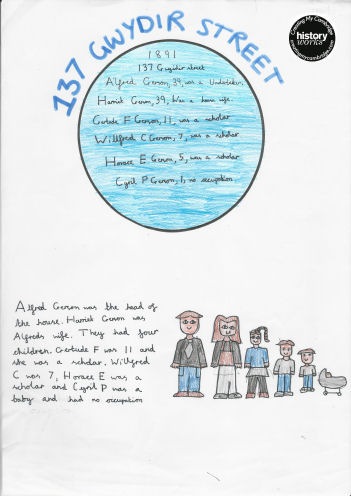 137 GWYDIR STREET
Creating My Cambridge
history
works
creatingmycambridge.com
1891
137 Gwydir street
Alfred Gerson, 39, was a Undertaker.
Harriet Gerson, 39, Was a house wife.
Gertude F Gerson, 11, was a scholar
Willfred C Gerson, 7, was a scholar
Horace E Gerson, 5, was a scholar
Cyril P Gerson, 1, no occupation
Alfred Gerson was the head of
the house. Harriet Gerson was
Alfreds wife. They had four
children. Gertude F was 11 and
she was a scholar. Willfred
C was 7, Horace E was a
scholar and Cyril P was a
baby and had no occupation